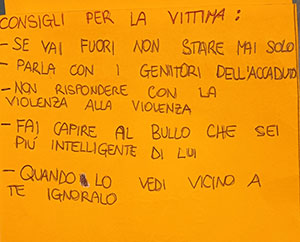 CONSIGLI PER LA VITTIMA:
- SE VAI FUORI NON STARE MAI SOLO
- PARLA CON I GENITORI DELL'ACCADUTO
- NON RISPONDERE CON LA
VIOLENZA ALLA VIOLENZA
- FAI CAPIRE AL BULLO CHE SEI
PIÚ INTELLIGENTE DI LUI
- QUANDO LO VEDI VICINO A
TE IGNORALO